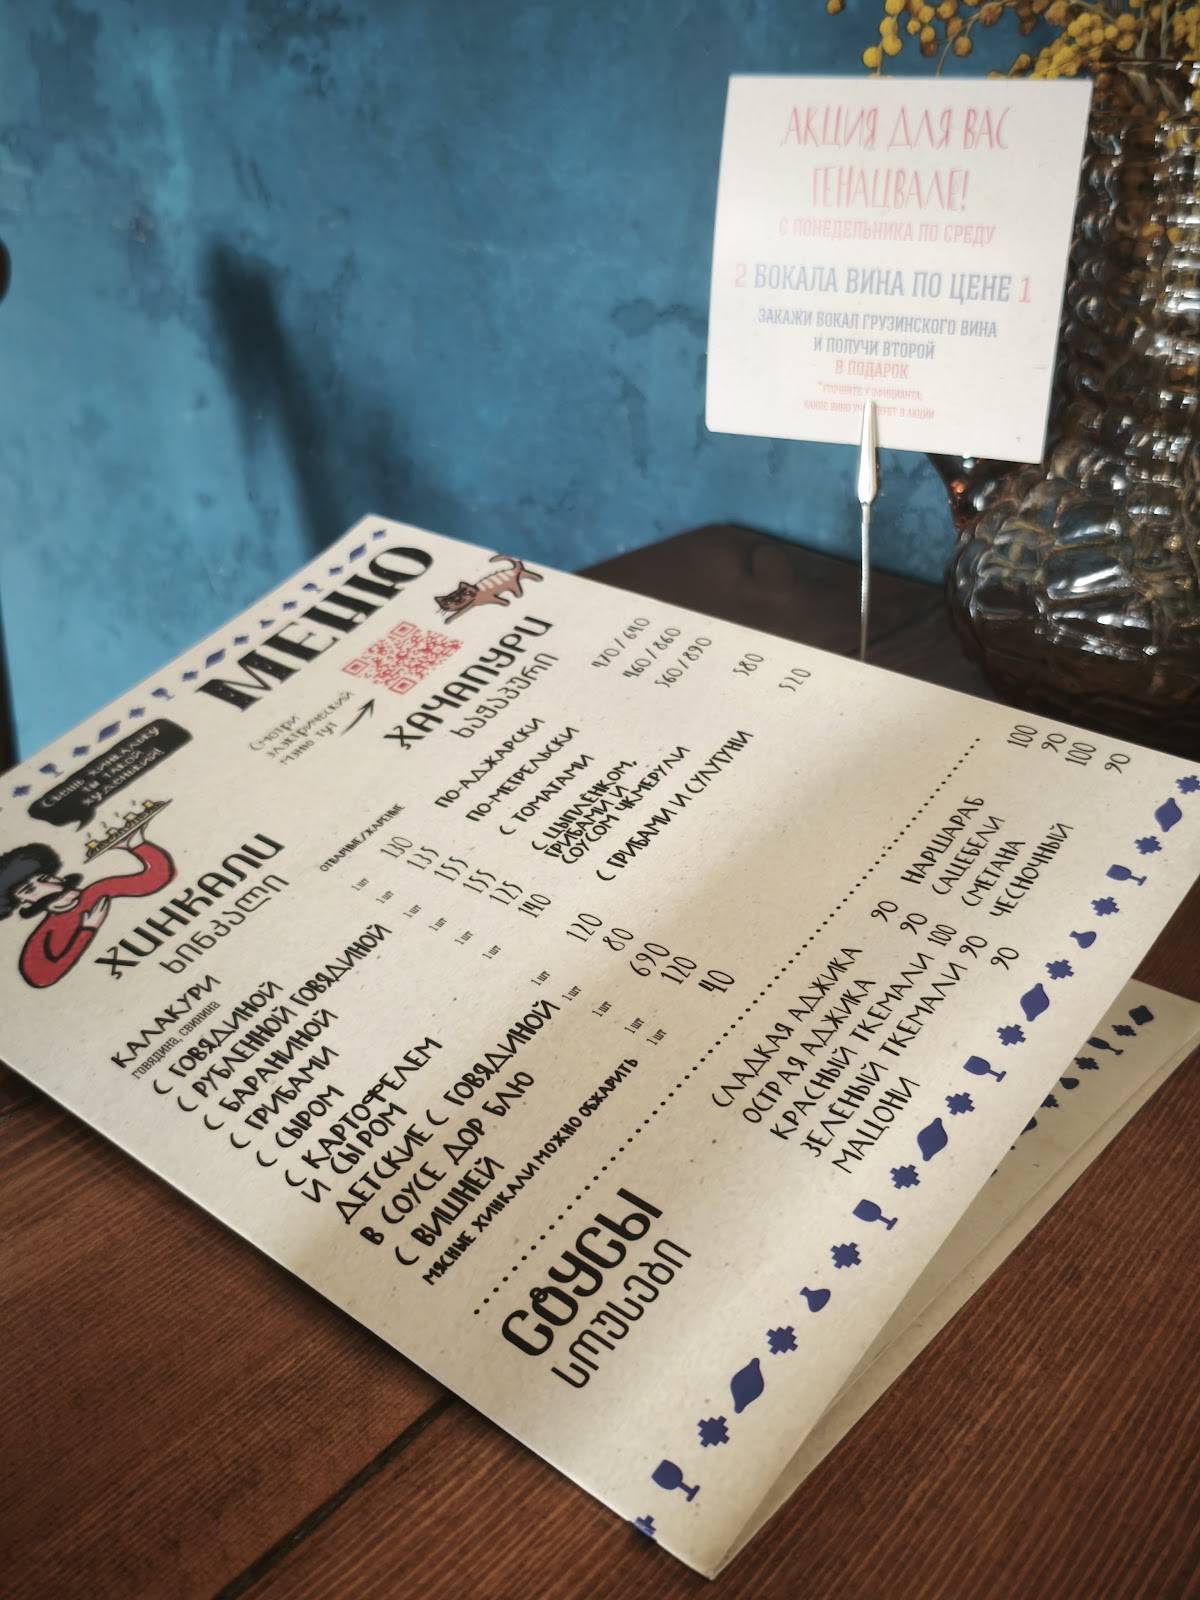 АКЦИЯ ДЛЯ ВАС
ГЕНАЦВАЛЕ!
С ПОНЕДЕЛЬНИКА ПО СРЕДУ
2 БОКАЛА ВИНА ПО ЦЕНЕ 1
ЗАКАЖИ БОКАЛ ГРУЗИНСКОГО ВИНА
И ПОЛУЧИ ВТОРОЙ
В ПОДАРОК
*УТОЧНИТЕ У ОФИЦИАНТА,
КАКОЕ ВИНО В АКЦИИ
МЕНЮ
СМОТРИ
ЭЛЭКТРИЧЕСКИЙ
МЭНЮ ТУТ
СЪЕШЬ ХИНКАЛЬКУ
ТЫ ТАКОЙ
ХУДЕНЬКИЙ!
ХИНКАЛИ
ხინკალი
ОТВАРНЫЕ/ЖАРЕНЫЕ
КАЛАКУРИ 1 шт 130
говядина, свинина
С ГОВЯДИНОЙ 1 шт 135
С РУБЛЕННОЙ ГОВЯДИНОЙ 1 шт 155
С БАРАНИНОЙ 1 шт 155
С ГРИБАМИ 1 шт 125
С СЫРОМ 1 шт 140
С КАРТОФЕЛЕМ
И СЫРОМ 1 шт 120
ДЕТСКИЕ С ГОВЯДИНОЙ 1 шт 80
В СОУСЕ ДОР БЛЮ 1 шт 690
С ВИШНЕЙ 1 шт 120
МЯСНЫЕ ХИНКАЛИ МОЖНО ОБЖАРИТЬ 1 шт 40
ХАЧАПУРИ
ხაჭაპური
ПО-АДЖАРСКИ 470/640
ПО-МЕГРЕЛЬСКИ 460/860
С ТОМАТАМИ 560/890
С ЦЫПЛЁНКОМ,
ГРИБАМИ И
СОУСОМ ЧКМЕРУЛИ 580
С ГРИБАМИ И СУЛУГУНИ 520
СОУСЫ
სოუსები
СЛАДКАЯ АДЖИКА 90
ОСТРАЯ АДЖИКА 90
КРАСНЫЙ ТКЕМАЛИ 100
ЗЕЛЕНЫЙ ТКЕМАЛИ 90
МАЦОНИ 90
НАРШАРАБ 100
САЦЕБЕЛИ 90
СМЕТАНА 100
ЧЕСНОЧНЫЙ 90